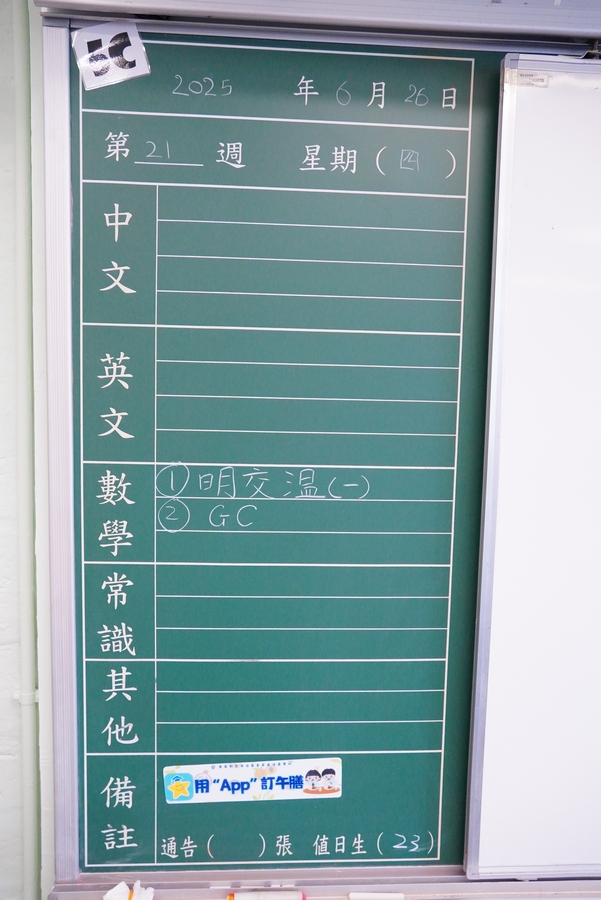 5C
2025 年 6 月 26 日
第 21 週 星期（四）
中文
英文
數學
① 明交溫(一)
② GC
常識
其他
備註
用“App”訂午膳
通告（ ）張 值日生（23）